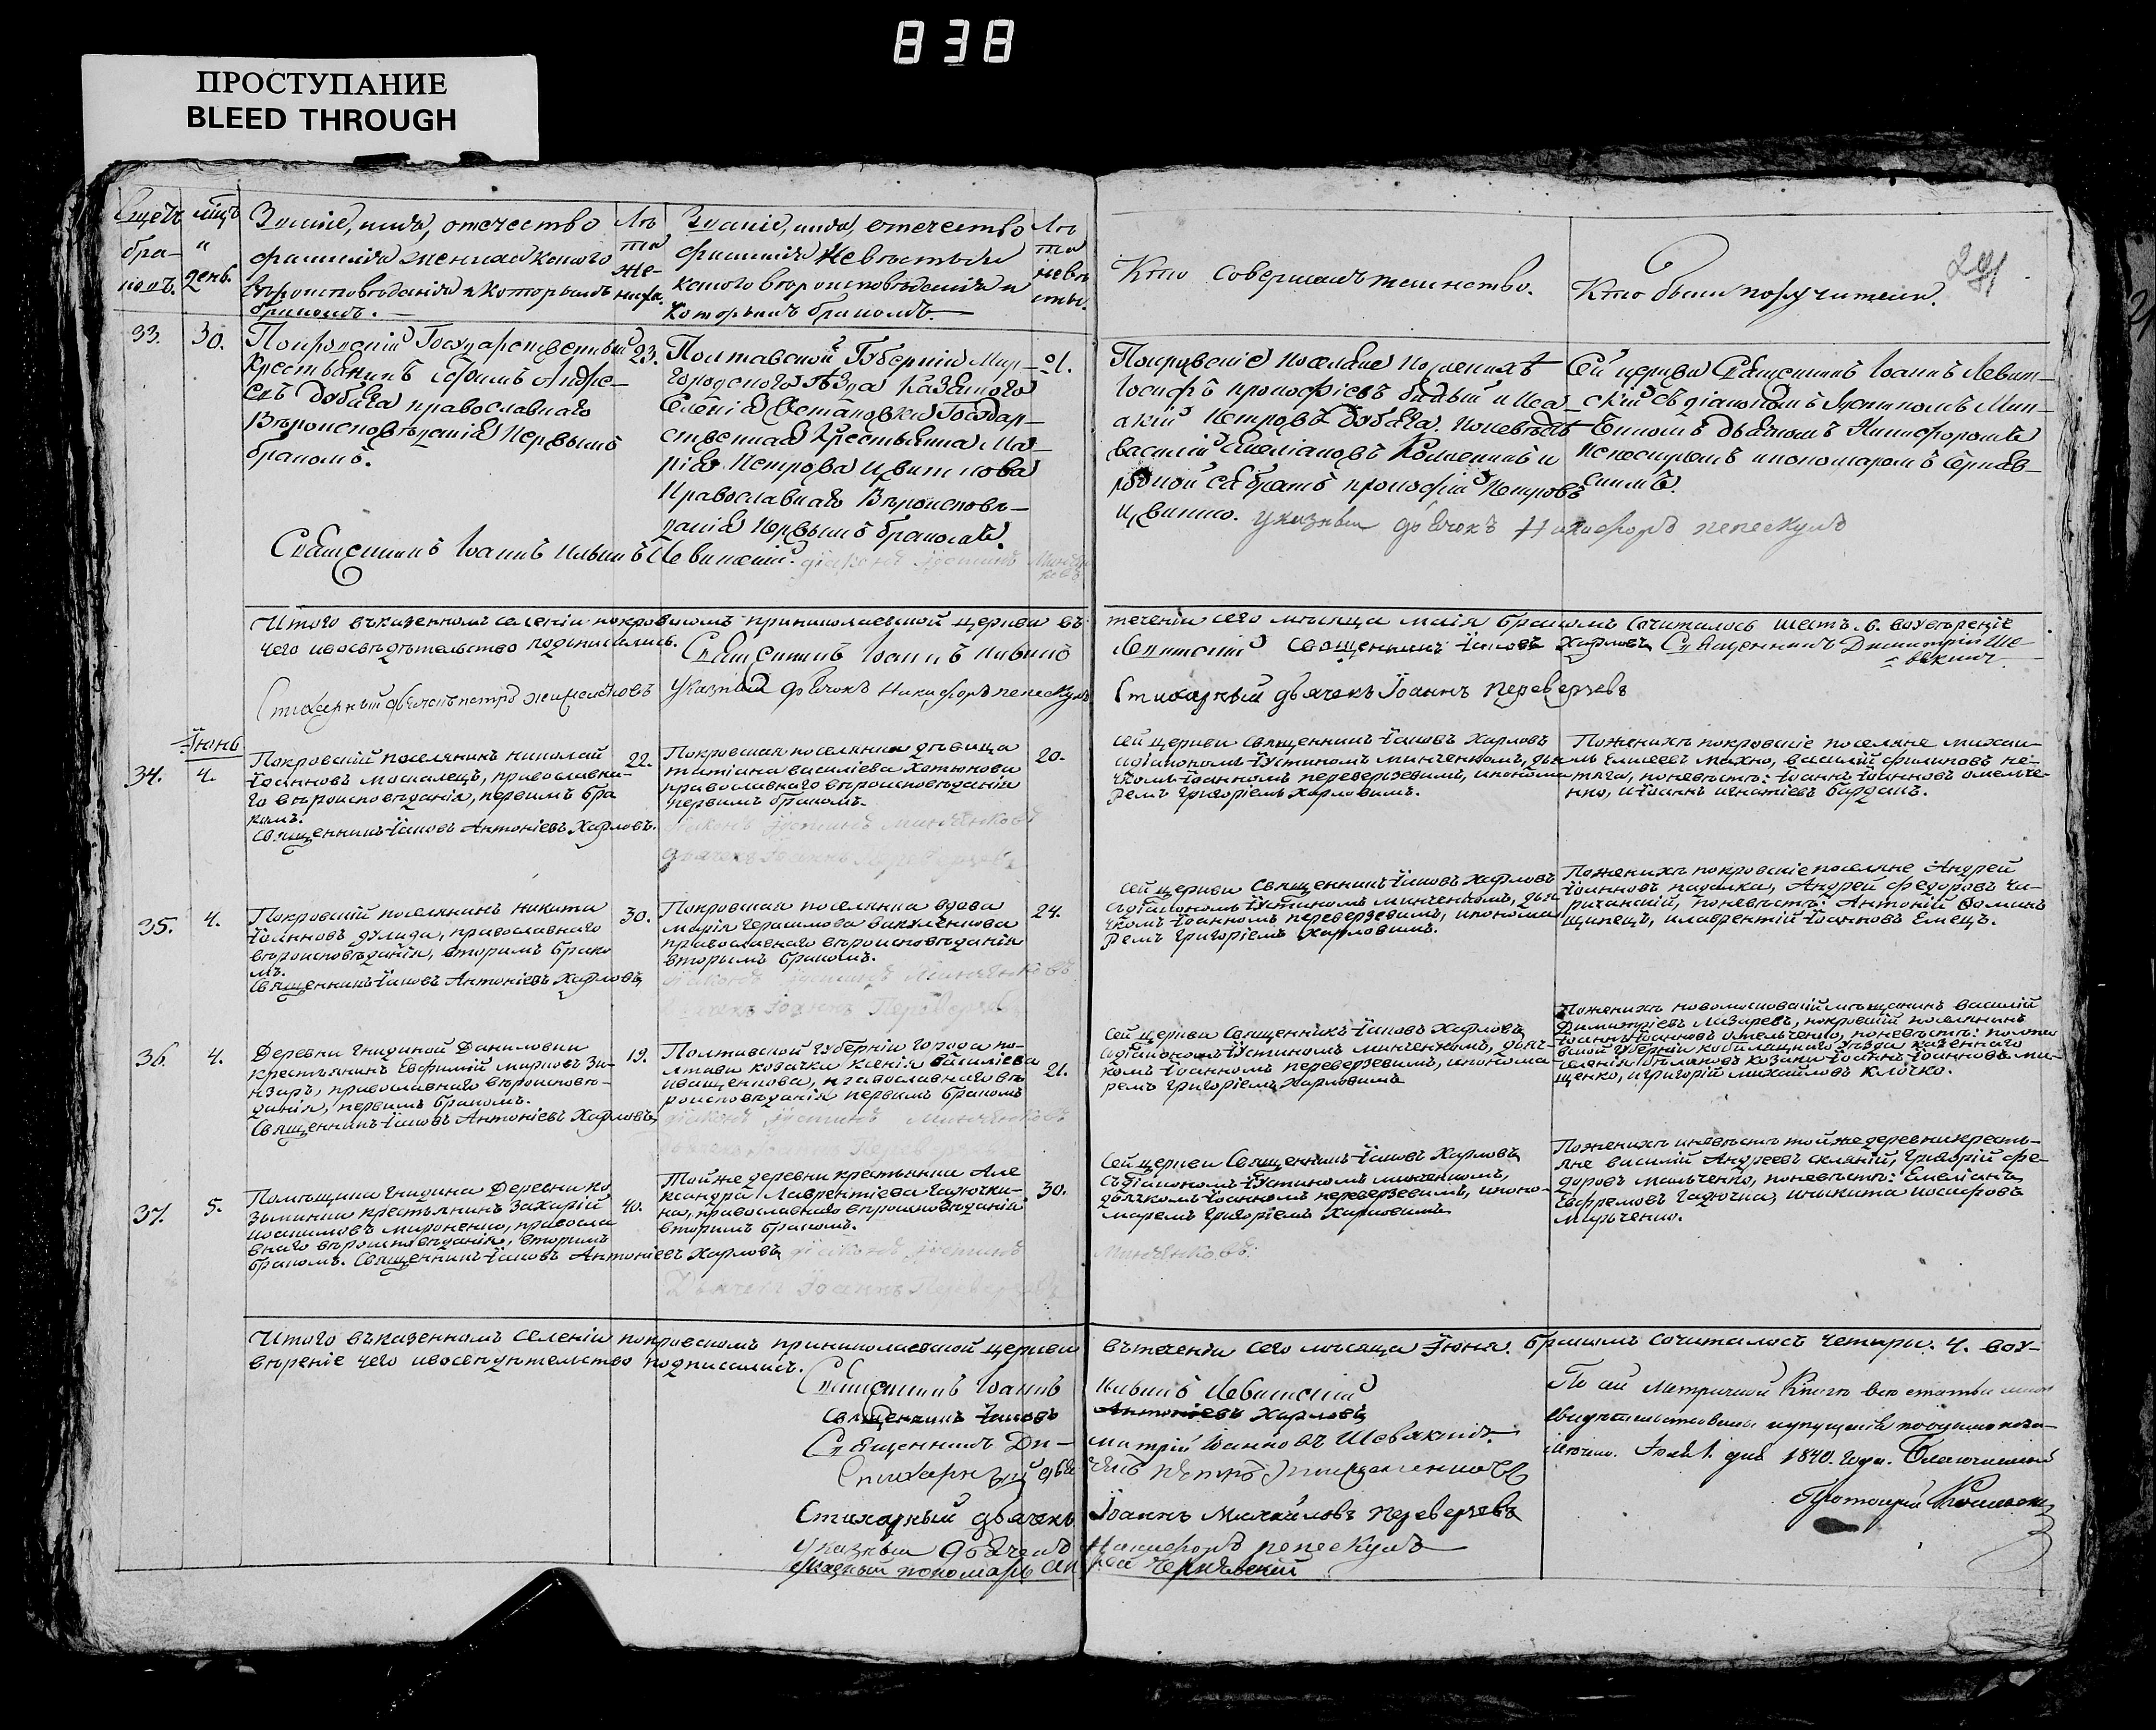 838
ПРОСТУПАНИЕ
BLEED THROUGH
Счетъ браковъ.
мцъ и день.
Званіе, имя, отечество
фамилія жениха какого
вѣроисповѣданія и которымъ
бракомъ.
Лѣта жениха.
Званіе, имя, отечество
фамилія невѣсты и
какого вѣроисповѣданія и
которымъ бракомъ.
Лѣта невѣсты.
Кто совершалъ таинство.
Кто были поручители.
33.
30.
Покровскій Государственный
крестьянинъ Ефимъ Андре-
евъ Добага православнаго
Вѣроисповѣданія первымъ
бракомъ.
23.
Полтавской Губерніи Мир-
городскаго уѣзда казеннаго
Селенія Остановки Государ-
ственная Крестьянка Ма-
рія Петрова Цвиткова
Православнаго Вѣроисповѣ-
данія первымъ бракомъ.
21.
Покровскіе поселяне по женихѣ
Іосифъ прокофіевъ и Иса-
акій Петровъ Добага. по невѣстѣ
василій Емеліановъ и
родной ея братъ прокофій Петровъ
Цвитко.
Сей церкви Священникъ Іоаннъ Левит-
скій съ діакономъ Іустиномъ Мин-
ченкомъ дьячкомъ Никифоромъ
Пепескуломъ и пономаремъ Черняв-
скимъ.
указный дьячокъ Никифоръ пепескулъ
Священникъ Іоаннъ Ильинъ Левитскій. діаконъ Іустинъ Минченковъ
Итого въ казенномъ селеніи покровскомъ при николаевской церкви въ теченіи сего мѣсяца маія бракомъ сочиталось шесть. 6. во увѣреніе
чего и во свѣдѣтельство подписались. Священникъ Іоаннъ Ильинъ Левитскій Священникъ Іаковъ Харловъ Священникъ Димитрій Ше-
вякинъ
Стихарный дьячекъ петръ указный дьячокъ Никифоръ пепескулъ Стихарный дьячекъ Іоаннъ Переверзевъ
Іюнь
34.
4.
Покровскій поселянинъ Николай
Іоанновъ москалецъ, православна-
го вѣроисповѣданія, первымъ бра
комъ.
Священникъ Іаковъ Антоніевъ Харловъ.
22.
Покровская поселянка дѣвица
татіана василіева Хотюнова
православнаго вѣроисповѣданія
первымъ бракомъ.
діаконъ Іустинъ Минченковъ
дьячекъ Іоаннъ Переверзевъ
20.
Сей церкви священникъ Іаковъ Харловъ
съ діакономъ Іустиномъ минченкомъ, дья
чкомъ Іоанномъ переверзевымъ, и понома
ремъ Григоріемъ Харловымъ.
По женихѣ покровскіе поселяне михаи
лъ Елисеевъ махно, василій филиповъ не-
тяга, по невѣстѣ: Іоаннъ Іоанновъ омельче-
нко, и Іоаннъ игнатіевъ бардакъ.
35.
4.
Покровскій поселянинъ никита
Іоанновъ дулида, православнаго
вѣроисповѣданія, вторимъ брако
мъ.
Священникъ Іаковъ Антоніевъ Харловъ
30.
Покровская поселянка вдова
марія герасимова вакуленкова
православнаго вѣроисповѣданія
вторымъ бракомъ.
діаконъ Іустинъ Минченковъ
дьячекъ Іоаннъ Переверзевъ
24.
Сей церкви Священникъ Іаковъ Харловъ
съ діакономъ Іустиномъ минченкомъ, дья
чкомъ Іоанномъ переверзевимъ, и понома
ремъ григоріемъ Харловимъ.
По женихѣ покровскіе поселяне Андрей
Іоанновъ падалка, Андрей федоровъ чи-
ричанскій, по невѣстѣ: Антоній Фоминъ
щипецъ, и лаврентій Іоанновъ Емецъ.
36.
4.
Деревни гнидиной Даниловки
крестьянинъ Евфимій марковъ Зи-
нзарь, православнаго вѣроисповѣ-
данія, первимъ бракомъ.
Священникъ Іаковъ Антоніевъ Харловъ
19.
Полтавской губерніи города по-
лтави козачка ксенія василіева
иващенкова, православнаго вѣ
роисповѣданія первимъ бракомъ
діаконъ Іустинъ Минченковъ
дьячекъ Іоаннъ Переверзевъ
21.
Сей церкви Священникъ Іаковъ Харловъ
съ діакономъ Іустиномъ минченкомъ, дьяч-
комъ Іоанномъ переверзевимъ, и понома-
ремъ григоріемъ Харловимъ
По женихѣ новомосковскій мѣщанинъ василій
Димитріевъ Лазаревъ, покровскій поселянинъ
Іоаннъ Іоанновъ Омельченко, по невѣстѣ: полта
вской губерніи кобыляцкаго уѣзда казеннаго
селенія козаки Іоаннъ Іоанновъ ми-
щенко, и григорій михайловъ Клочко.
37.
5.
Помѣщика гнидина Деревни ко
зьминки крестьянинъ Захарій
мироненко, правосла
внаго вѣроисповѣданія, вторимъ
бракомъ. Священникъ Іаковъ Антоніевъ Харловъ діаконъ Іустинъ Минченковъ.
40.
Той же деревни крестьянка Але
ксандра Лаврентіева гадючки-
на, православнаго вѣроисповѣданія
вторимъ бракомъ.
Дьячекъ Іоаннъ Переверзевъ
30.
Сей церкви Священникъ Іаковъ Харловъ
съ діакономъ Іустиномъ минченкомъ,
дьячкомъ Іоанномъ переверзевимъ, и поно-
маремъ григоріемъ Харловимъ
По женихѣ и невѣстѣ той же деревни кресть-
яне василій Андреевъ скляній, григорій фе-
доровъ мальченко, по невѣстѣ: Емеліанъ
Евфремовъ гадючка, и никита иосифовъ
марченко.
Итого въ казенномъ селеніи покровскомъ при николаевской церкви въ теченіи сего мѣсяца Іюня. бракомъ сочиталось четыри. 4. во у-
вѣреніе чего и во свѣдѣтельство подписались.
Священникъ Іоаннъ Ильинъ Левитскій
Священникъ Іаковъ Антоніевъ Харловъ
Священникъ Димитрій Іоанновъ Шевякинъ
Стихарный дьячекъ Петръ
Стихарный дьячекъ Іоаннъ Михайловъ Переверзевъ
Указный дьячекъ Никифоръ пепескулъ
указный пономарь Чернявскій
По сей Метрической Книгѣ всѣ статьи мною
свидѣтельствованы
1. дня 1840. года. Благочинный
Протоіерей